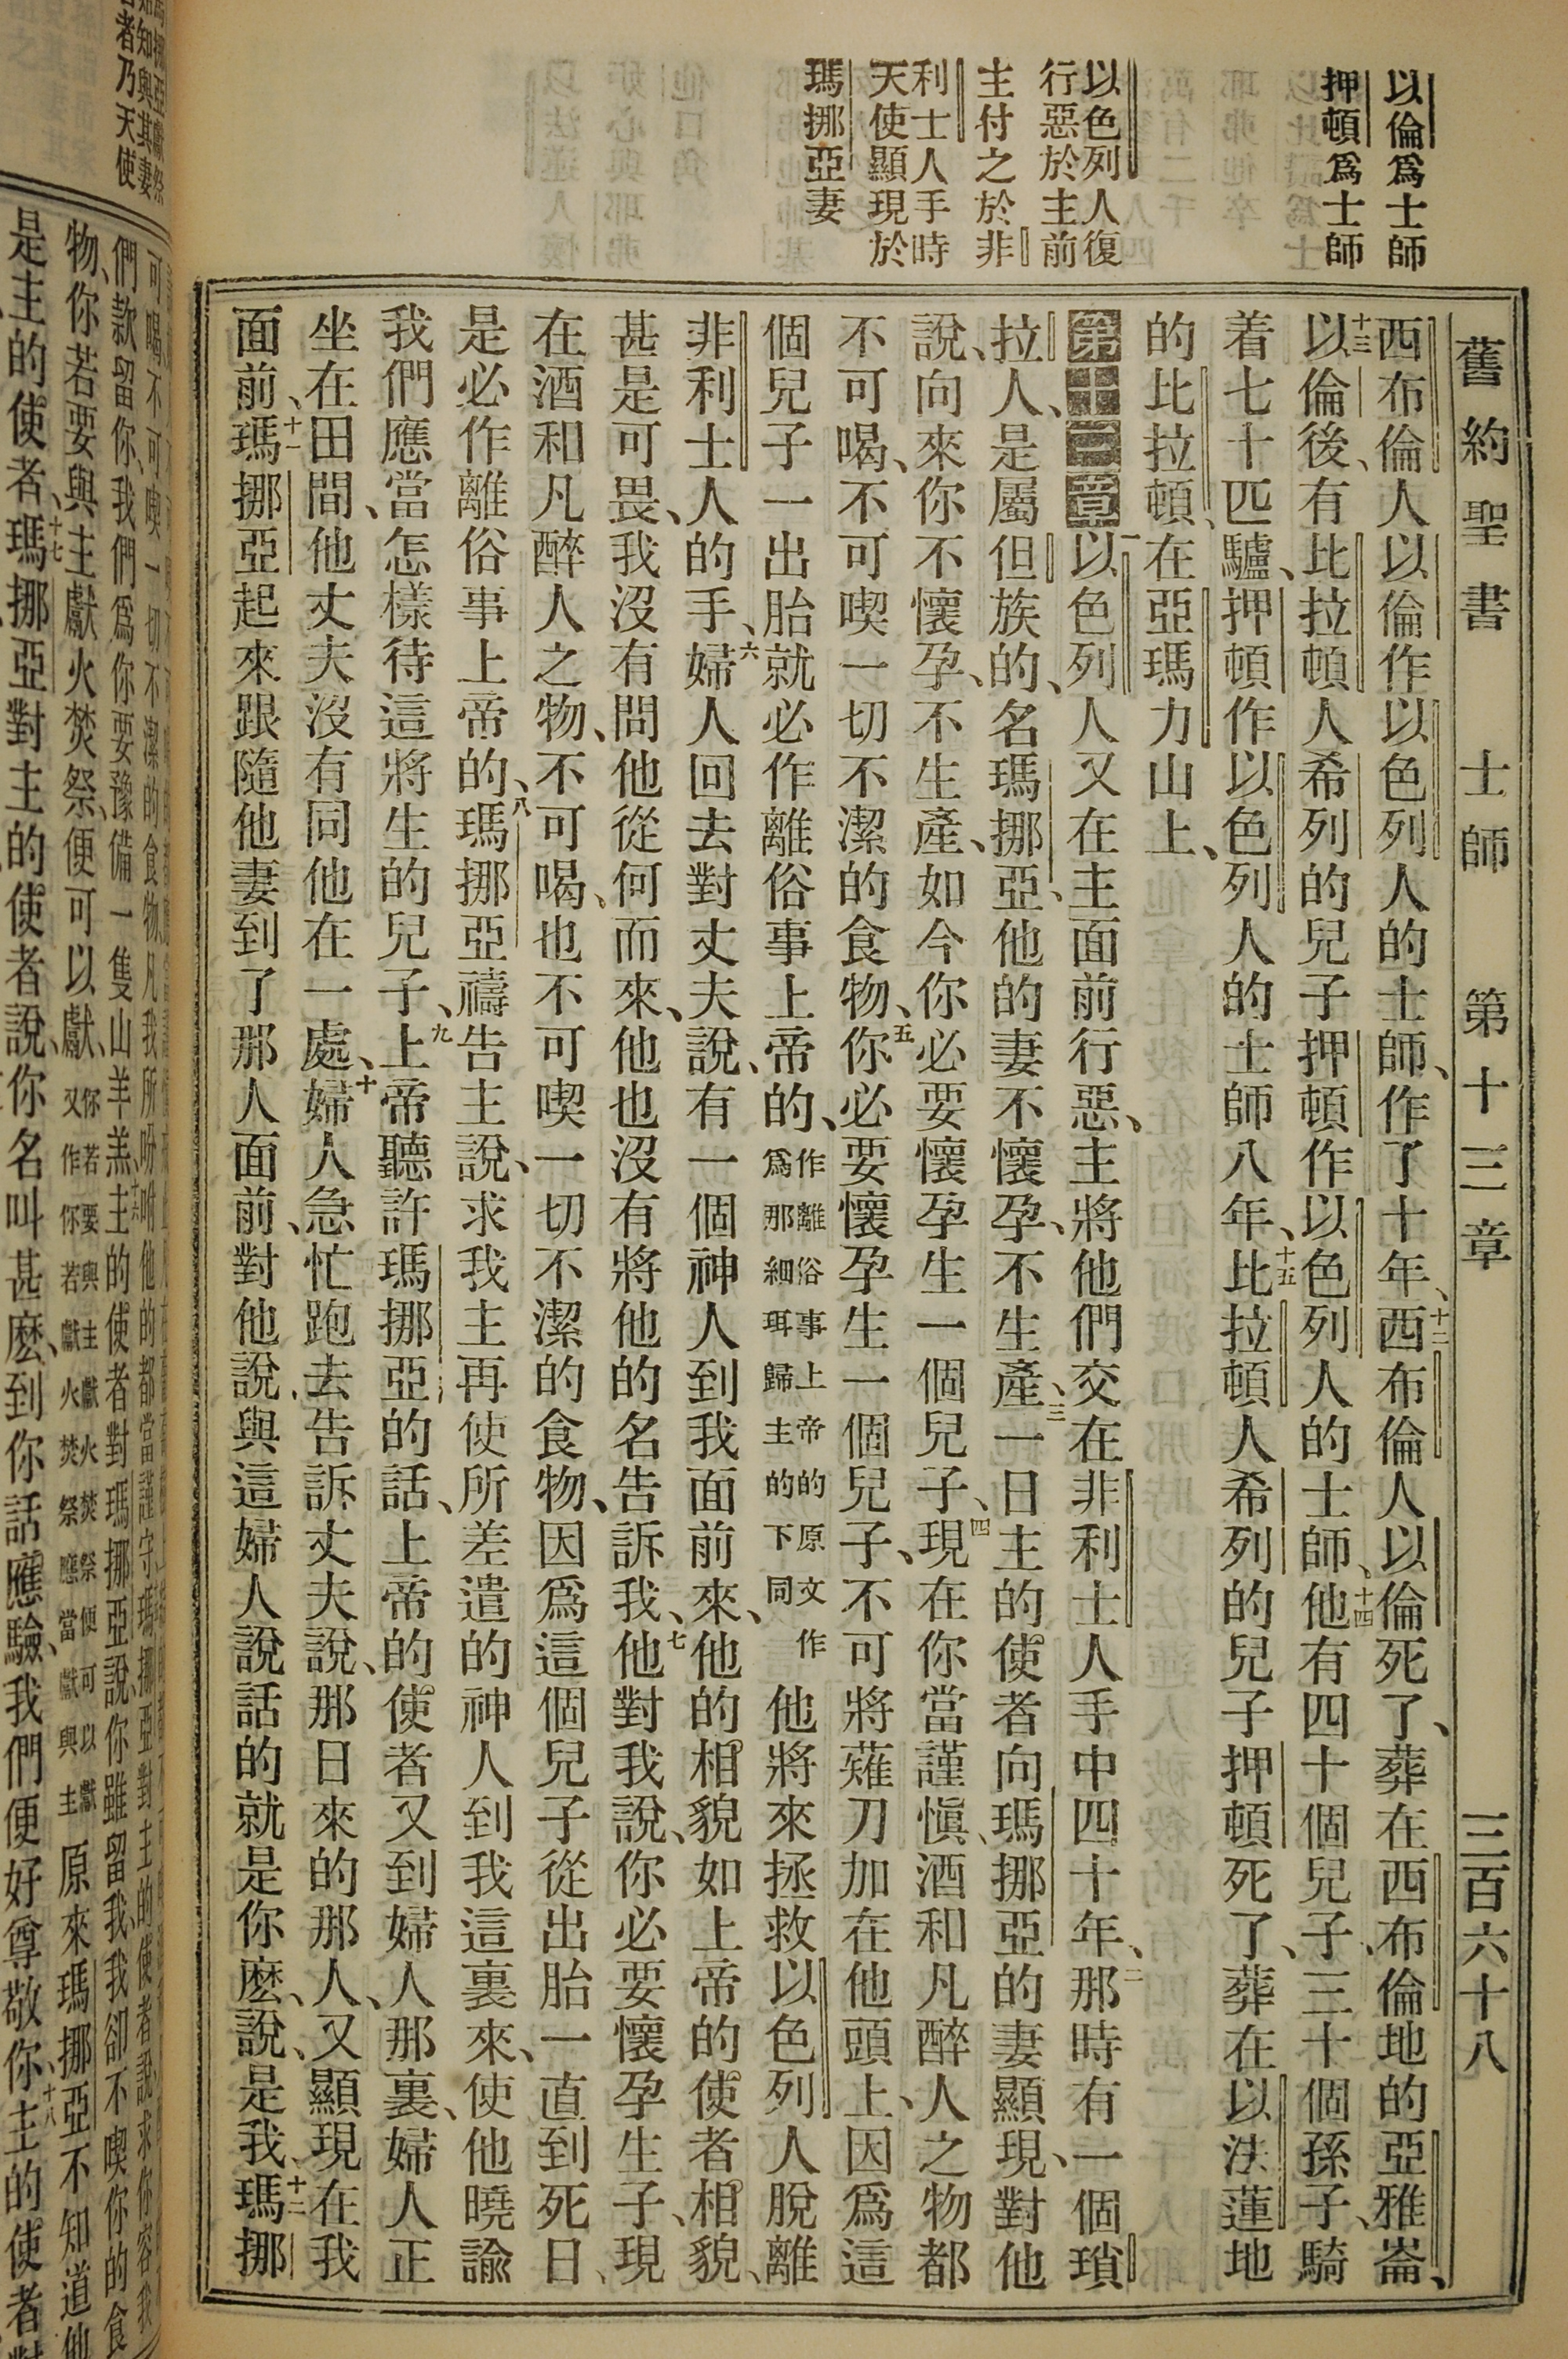 舊約聖書 士師 第十三章 三百六十八
以倫爲士師
押頓爲士師
以色列人復
行惡於主前
主付之於非
利士人手時
天使顯現於
瑪挪亞妻
西布倫人以倫作以色列人的士師、作了十年、十二西布倫人以倫死了、葬在西布倫地的亞雅崙、
十三以倫後、有比拉頓人希列的兒子押頓作以色列人的士師、十四他有四十個兒子、三十個孫子、騎
着七十匹驢、押頓作以色列人的士師八年、十五比拉頓人希列的兒子押頓死了、葬在以法蓮地
的比拉頓、在亞瑪力山上、
第十三章 一以色列人又在主面前行惡、主將他們交在非利士人手中四十年、二那時有一個瑣
拉人、是屬但族的、名瑪挪亞、他的妻不懷孕、不生產、三一日主的使者向瑪挪亞的妻顯現、對他
說、向來你不懷孕、不生產、如今你必要懷孕生一個兒子、四現在你當謹愼、酒和凡醉人之物都
不可喝、不可喫一切不潔的食物、五你必要懷孕生一個兒子、不可將薙刀加在他頭上、因爲這
個兒子一出胎就必作離俗事上帝的、作離俗事上帝的原文作爲那細珥歸主的下同他將來拯救以色列人脫離
非利士人的手、六婦人回去對丈夫說、有一個神人到我面前來、他的相貌如上帝的使者相貌、
甚是可畏、我沒有問他從何而來、他也沒有將他的名告訴我、七他對我說、你必要懷孕生子、現
在酒和凡醉人之物、不可喝、也不可喫一切不潔的食物、因爲這個兒子從出胎一直到死日、
是必作離俗事上帝的、八瑪挪亞禱告主說、求我主再使所差遣的神人到我這裏來、使他曉諭
我們應當怎樣待這將生的兒子、九上帝聽許瑪挪亞的話、上帝的使者又到婦人那裏、婦人正
坐在田間、他丈夫沒有同他在一處、十婦人急忙跑去告訴丈夫說、那日來的那人、又顯現在我
面前、十一瑪挪亞起來跟隨他妻到了那人面前、對他說、與這婦人說話的就是你麽、說、是我、十二瑪挪
者乃天使
們款留你、我們爲你要豫備一隻山羊羔、十六主的使者對瑪挪亞說、你雖留我、我卻不喫你的食
物、你若要與主獻火焚祭、便可以獻、你若要與主獻火焚祭便可以獻又作你若獻火焚祭應當獻與主原來瑪挪亞不知道他
是主的使者、十七瑪挪亞對主的使者說、你名叫甚麽、到你話應驗、我們便好尊敬你、十八主的使者對